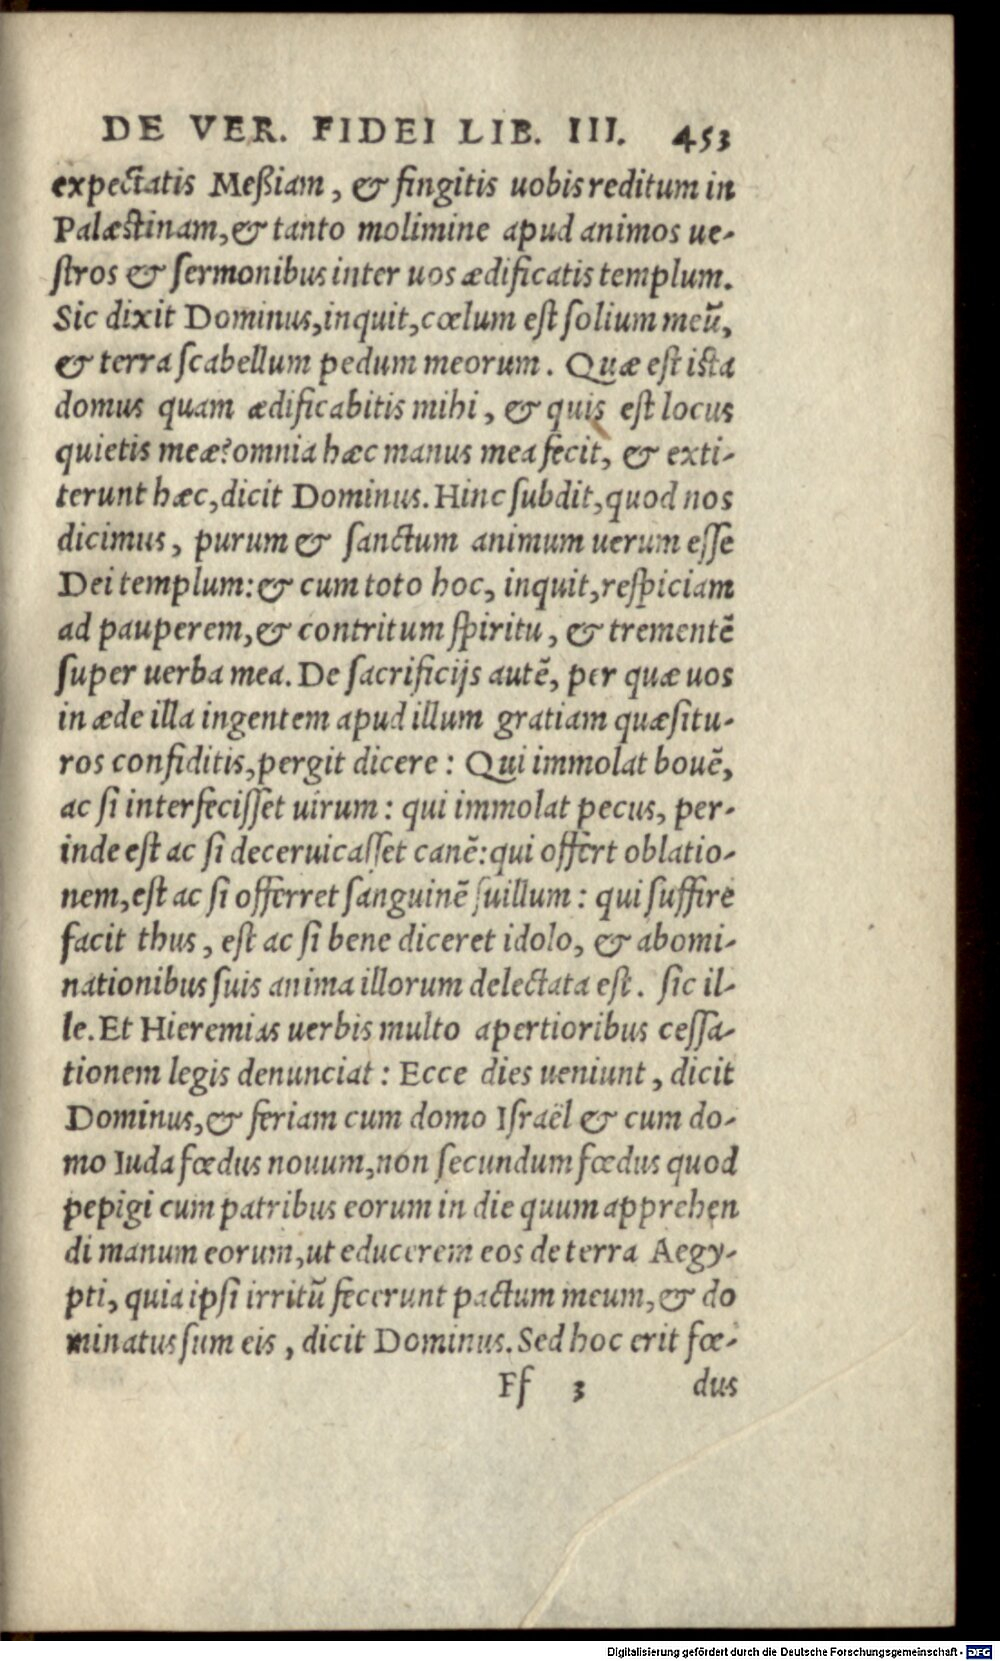 DE VER. FIDEI LIB. III. 453
expectatis Meßiam, & fingitis uobis reditum in
Palæstinam, & tanto molimine apud animos ue-
ſtros & ſermonibus inter uos ædificatis templum.
Sic dixit Dominus, inquit, cœlum eſt ſolium meū,
& terra ſcabellum pedum meorum. Quæ eſt ista
domus quam ædificabitis mihi, & quis eſt locus
quietis meæ? omnia hæc manus mea fecit, & exti-
terunt hæc, dicit Dominus. Hinc ſubdit, quod nos
dicimus, purum & ſanctum animum uerum eſſe
Dei templum: & cum toto hoc, inquit, reſpiciam
ad pauperem, & contritum ſpiritu, & trementē
ſuper uerba mea. De ſacrificijs autē, per quæ uos
in æde illa ingentem apud illum gratiam quæſitu-
ros confiditis, pergit dicere: Qui immolat bouē,
ac ſi interfeciſſet uirum: qui immolat pecus, per-
inde eſt ac ſi deceruicaſſet canē: qui offert oblatio-
nem, eſt ac ſi offerret ſanguinē ſuillum: qui ſuffire
facit thus, eſt ac ſi bene diceret idolo, & abomi-
nationibus ſuis anima illorum delectata eſt. ſic il-
le. Et Hieremias uerbis multo apertioribus ceſſa-
tionem legis denunciat: Ecce dies ueniunt, dicit
Dominus, & feriam cum domo Iſraël & cum do-
mo Iuda fœdus nouum, non ſecundum fœdus quod
pepigi cum patribus eorum in die quum apprehen
di manum eorum, ut educerem eos de terra Aegy-
pti, quia ipſi irritū fecerunt pactum meum, & do
minatus ſum eis, dicit Dominus. Sed hoc erit fœ-
Ff 3 dus
Digitalisierung gefördert durch die Deutsche Forschungsgemeinschaft - DFG